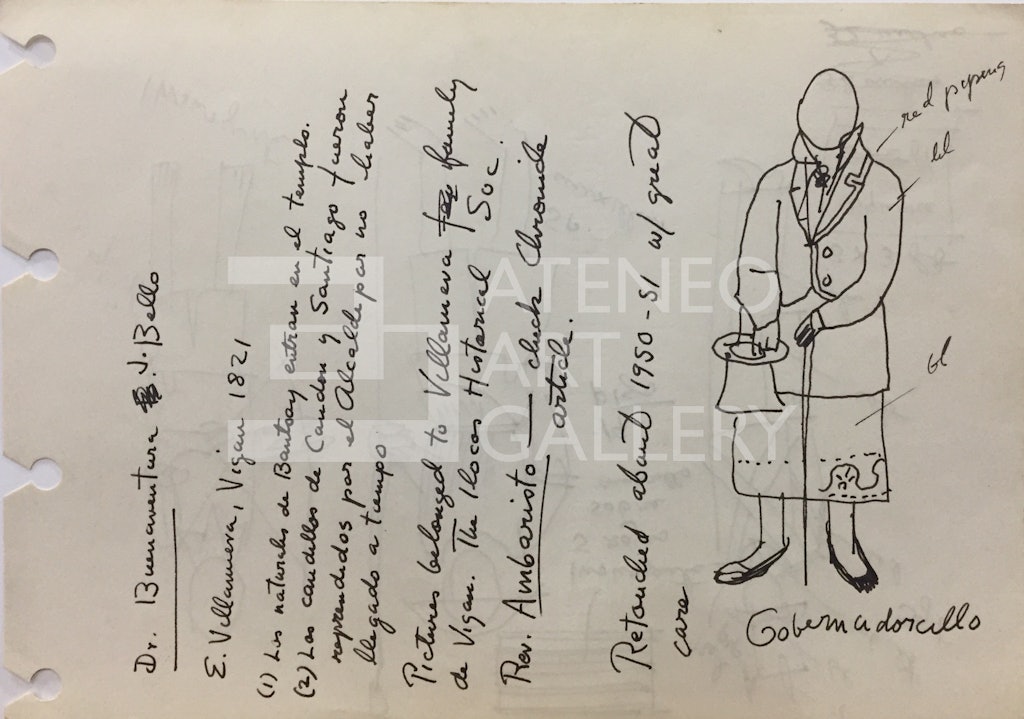 Dr. Buenaventura J. Bello
E. Villanueva, Vigan 1821
(1) Los naturales de Bantaoay entran en el templo.
(2) Los caudillos de Candon y Santiago fueron
reprendidos por el Alcalde por no haber
llegado a tiempo
Pictures belonged to Villanueva family
de Vigan. The Ilocos Historical Soc.
Rev. Ambaristo — check Chronicle
article.
Retouched about 1950-51 w/ great
care
red piping
bl
bl
Gobernadorcillo
ATENEO
ART
GALLERY